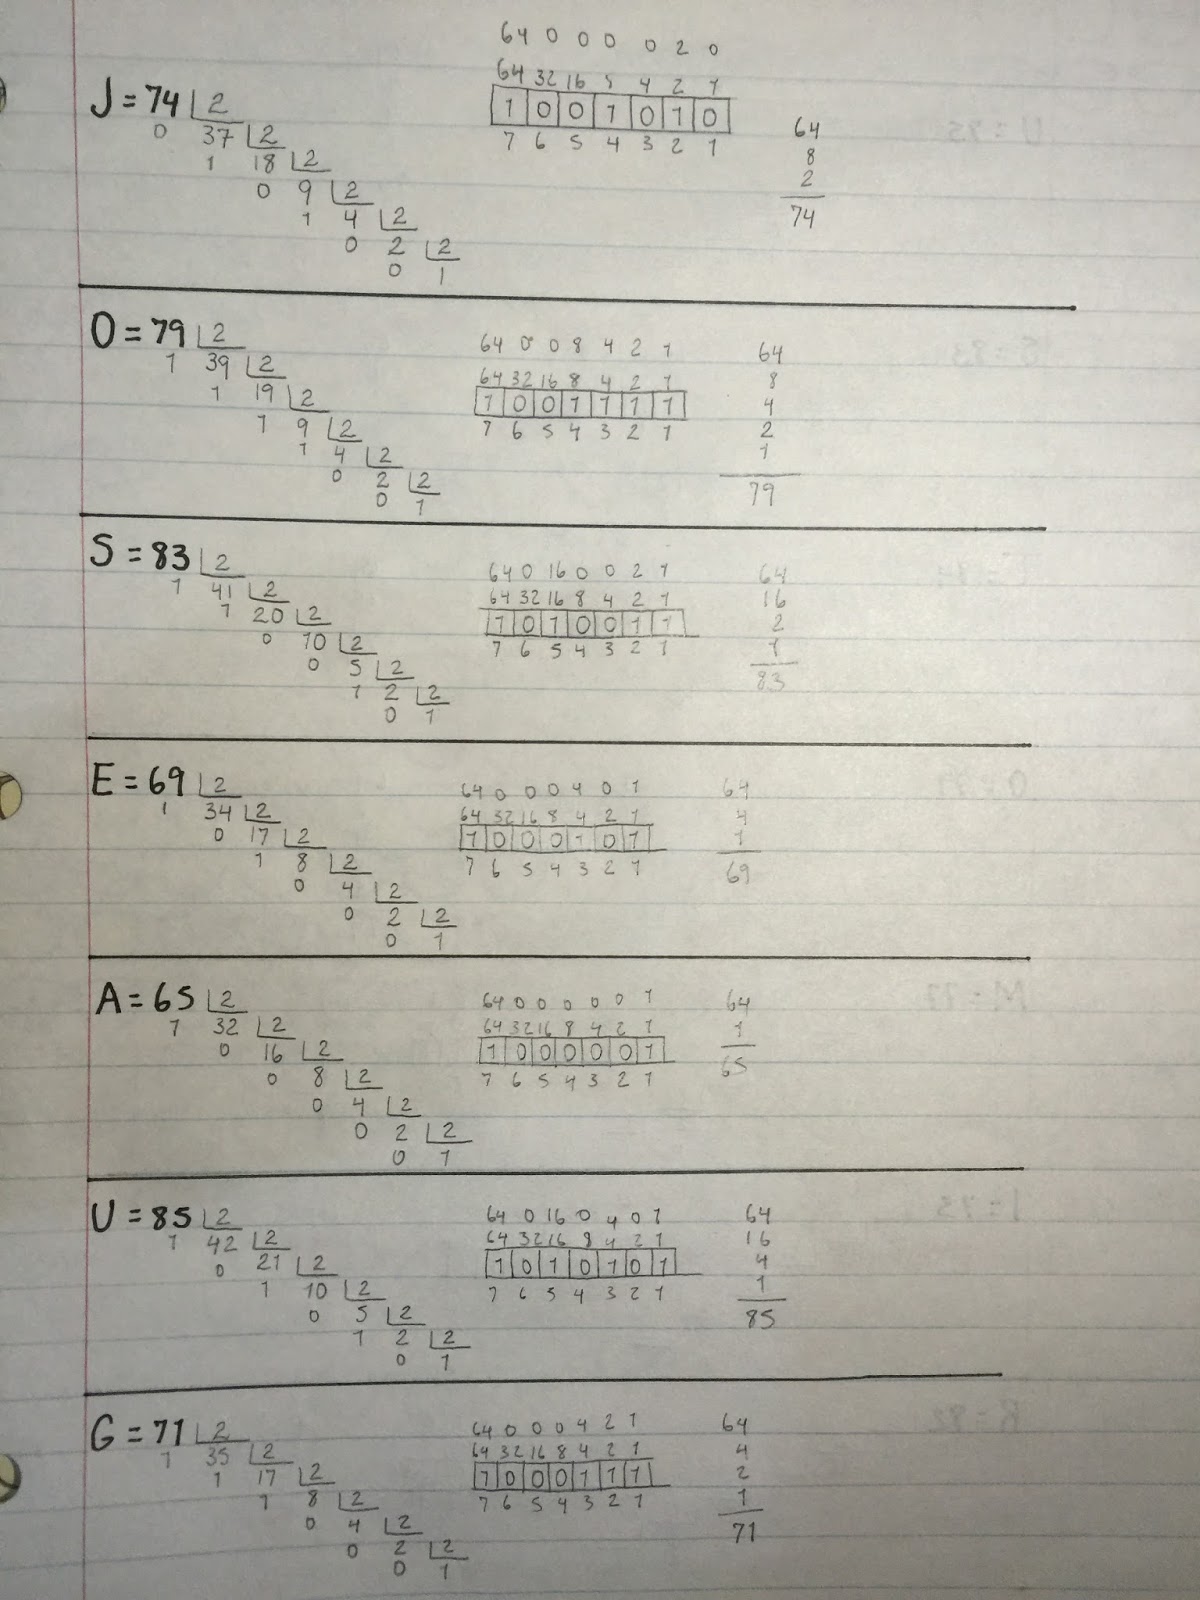 64 0 0 0 0 2 0
64 32 16 5 4 2 1
J = 74 2 1 0 0 1 0 1 0
0 37 2 7 6 5 4 3 2 1 64
1 18 2 8
0 9 2 2
1 4 2 74
0 2 2
0 1
O = 79 2 64 0 0 8 4 2 1 64
1 39 2 64 32 16 8 4 2 1 8
1 19 2 1 0 0 1 1 1 1 4
1 9 2 7 6 5 4 3 2 1 2
1 4 2 1
0 2 2 79
0 1
S = 83 2 64 0 16 0 0 2 1 64
1 41 2 64 32 16 8 4 2 1 16
1 20 2 1 0 1 0 0 1 1 2
0 10 2 7 6 5 4 3 2 1 1
0 5 2 83
1 2 2
0 1
E = 69 2 64 0 0 0 4 0 1 64
1 34 2 64 32 16 8 4 2 1 4
0 17 2 1 0 0 0 1 0 1 1
1 8 2 7 6 5 4 3 2 1 69
0 4 2
0 2 2
0 1
A = 65 2 64 0 0 0 0 0 1 64
1 32 2 64 32 16 8 4 2 1 1
0 16 2 1 0 0 0 0 0 1 65
0 8 2 7 6 5 4 3 2 1
0 4 2
0 2 2
0 1
U = 85 2 64 0 16 0 4 0 1 64
1 42 2 64 32 16 8 4 2 1 16
0 21 2 1 0 1 0 1 0 1 4
1 10 2 7 6 5 4 3 2 1 1
0 5 2 85
1 2 2
0 1
G = 71 2 64 0 0 0 4 2 1 64
1 35 2 64 32 16 8 4 2 1 4
1 17 2 1 0 0 0 1 1 1 2
1 8 2 7 6 5 4 3 2 1 1
0 4 2 71
0 2 2
0 1